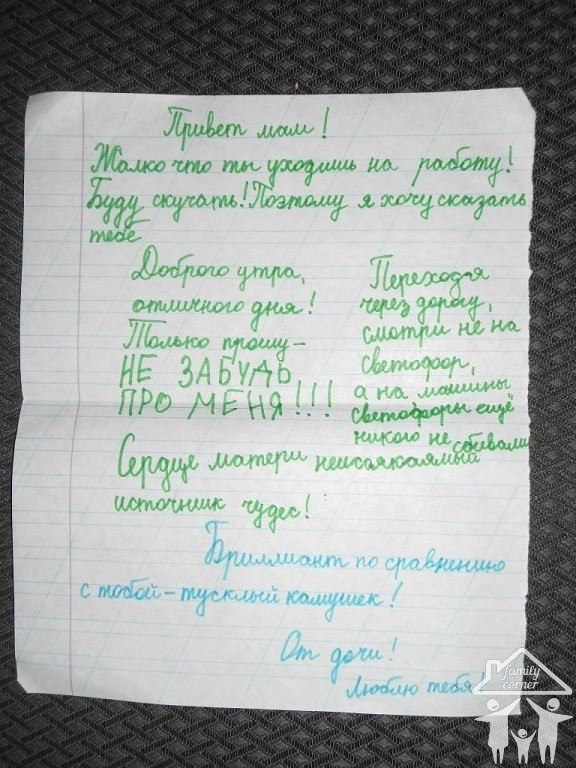 Привет мам!
Жалко что ты уходишь на работу!
Буду скучать! Поэтому я хочу сказать
тебе
Доброго утра,
отличного дня!
Только прошу –
НЕ ЗАБУДЬ
ПРО МЕНЯ!!!
Переходя
через дорогу,
смотри не на
светофор,
а на машины
светофоры ещё
никого не сбивали
Сердце матери неиссякаямый
источник чудес!
Бриллиант по сравнению
с тобой – тусклый камушек!
От дочи!
Люблю тебя
family
corner